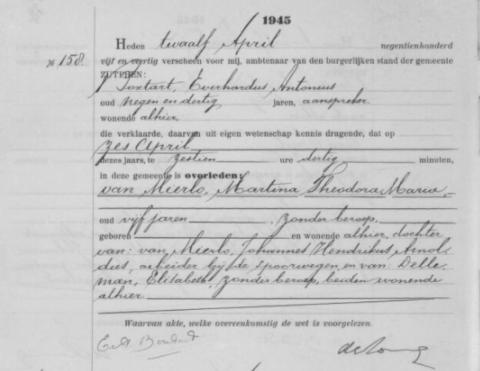 1945
Heden twaalf April negentienhonderd
№ 158. vijf en veertig verscheen voor mij, ambtenaar van den burgerlijken stand der gemeente
ZUTFEN:
Boxtart, Everhardus Antonius
oud negen en dertig jaren, aanspreker
wonende alhier
die verklaarde, daarvan uit eigen wetenschap kennis dragende, dat op
zes April
dezes jaars, te zestien ure dertig minuten,
in deze gemeente is overleden:
van Mierlo, Martina Theodora Maria,
oud vijf jaren, zonder beroep,
geboren en wonende alhier, dochter
van: van Mierlo, Johannes Hendrikus Arnol-
dus, arbeider bij de spoorwegen, en van: Delle-
man, Elisabeth, zonder beroep, beiden wonende
alhier.
Waarvan akte, welke overeenkomstig de wet is voorgelezen.